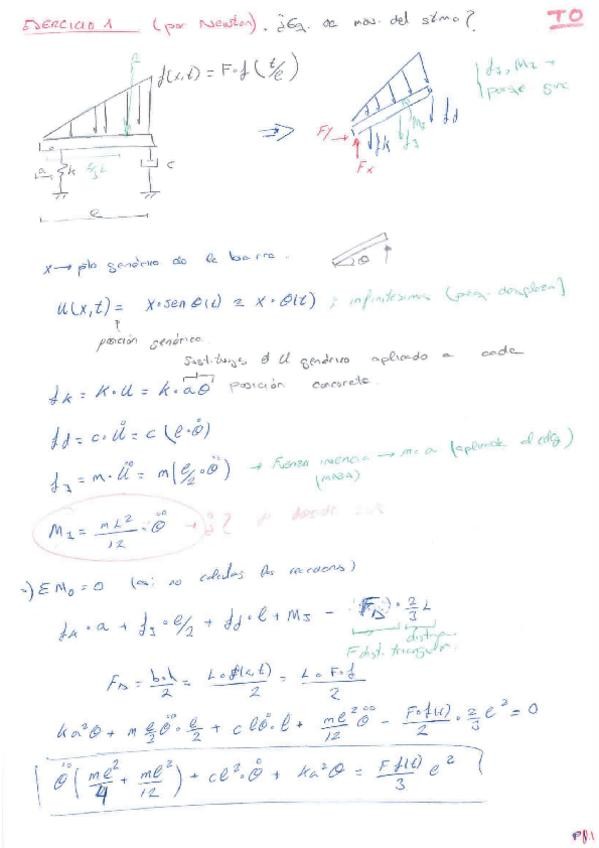 EJERCICIO 1 (por Newton). ¿Eq. de mov. del stma? TO
f(x,t) = F·f(t/e)
f_J, M_J →
porque
a k 2/3 L c
l
Fy → Fx f_k f_J M_J f_d
x → pto genérico de la barra.
θ
u(x,t) = x·sen θ(t) ≈ x·θ(t) ; infinitésimos (peq. desplazam]
posición genérica.
Sustituyes el u genérico aplicado a cada
f_k = k·u = k·aθ posición concreta.
f_d = c·u̇ = c(l·θ̇)
f_J = m·ü = m(l/2·θ̈) → Fuerza inercia → m·a (aplicada al cdg)
(masa)
M_J = mL²/12·θ̈ → ¿? desde
⇒) ΣM₀ = 0 (así no calculas las reacciones)
f_k·a + f_J·l/2 + f_d·l + M_J − F_D·2/3 L
F dist. triangular. distancia
F_D = b·h/2 = L·f(x,t)/2 = L·F·f/2
ka²θ + m l/2 θ̈·l/2 + c lθ̇·l + ml²/12 θ̈ − F·f(t)/2·2/3 l² = 0
θ̈(ml²/4 + ml²/12) + cl²·θ̇ + ka²θ = F f(t)/3 l²
Pg.1